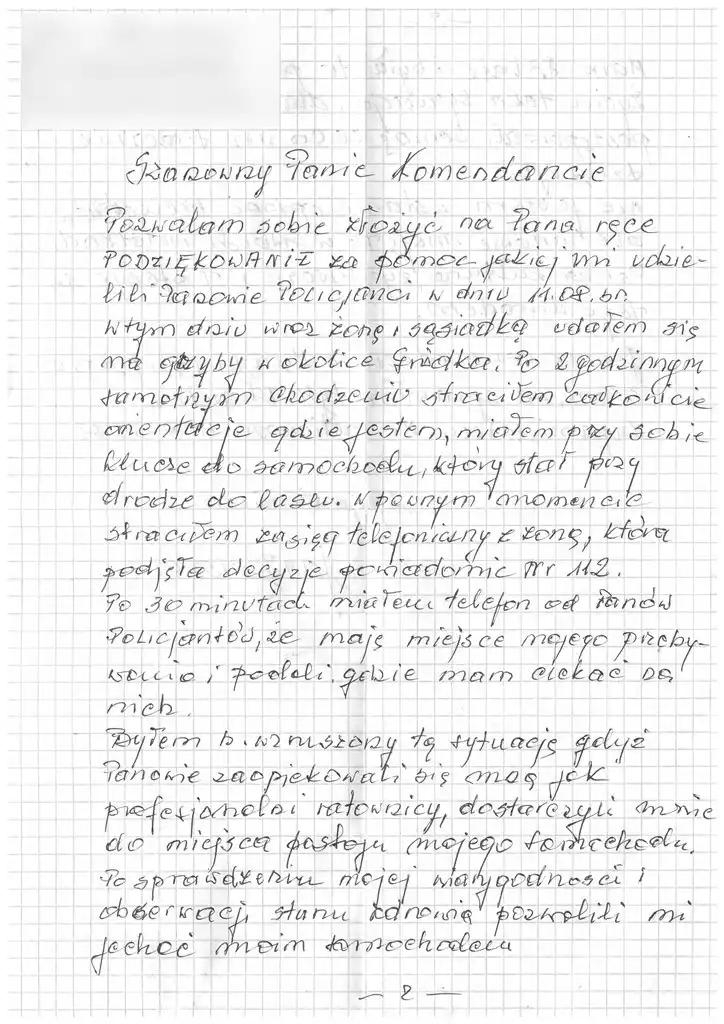 Szanowny Panie Komendancie
Pozwalam sobie złożyć na Pana ręce
PODZIĘKOWANIE za pomoc jakiej mi udzie-
lili Panowie Policjanci w dniu 11.08.br.
W tym dniu wraz żoną i sąsiadką udałem się
na grzyby w okolice Gródka. Po 2 godzinnym
samotnym chodzeniu straciłem całkowicie
orientację gdzie jestem, miałem przy sobie
klucze do samochodu, który stał przy
drodze do lasu. W pewnym momencie
straciłem zasięg telefoniczny z żoną, która
podjęła decyzję powiadomić Nr 112.
Po 30 minutach miałem telefon od Panów
Policjantów, że mają miejsce mojego przeby-
wania i podali, gdzie mam czekać na
nich.
Byłem b. wzruszony tą sytuacją gdyż
Panowie zaopiekowali się mną jak
profesjonalni ratownicy, dostarczyli mnie
do miejsca postoju mojego samochodu.
Po sprawdzeniu mojej wiarygodności i
obserwacji stanu zdrowia pozwolili mi
jechać moim samochodem
— 2 —